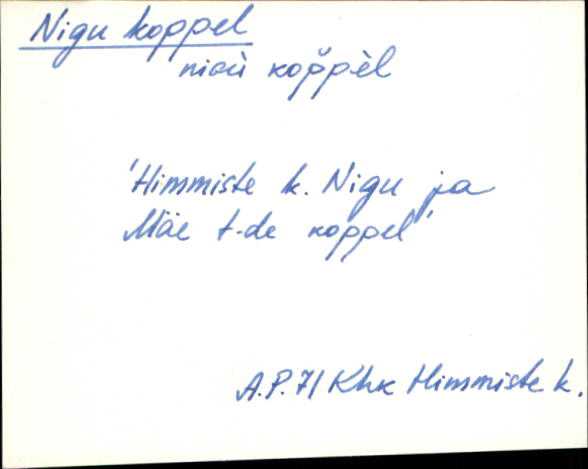 Nigu koppel
niɢù kop̆pèl
'Himmiste k. Nigu ja
Mäe t-de koppel'
A.P. 71 Khk Himmiste k.